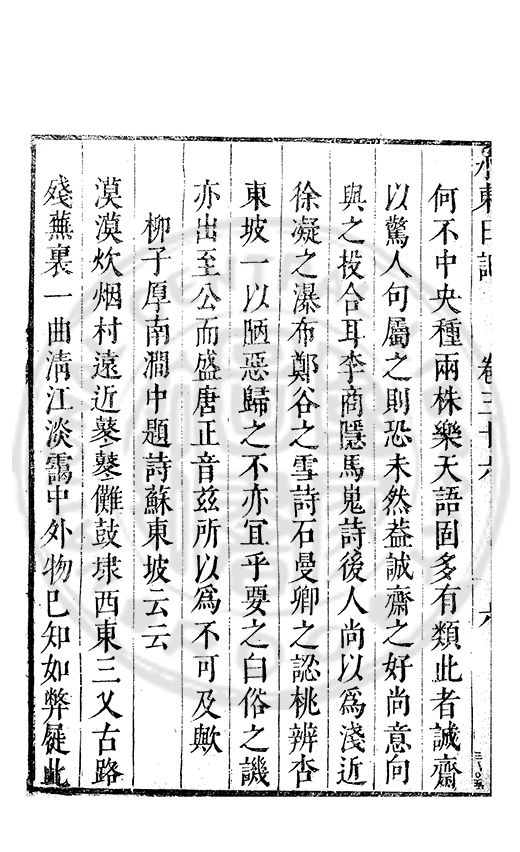 何不中央種兩株樂天語固多有類此者誠齋
以驚人句屬之則恐未然葢誠齋之好尚意向
與之投合耳李商隱馬嵬詩後人尚以爲淺近
徐凝之瀑布鄭谷之雪詩石曼卿之認桃辨杏
東坡一以陋惡歸之不亦宜乎要之白俗之譏
亦出至公而盛唐正音兹所以爲不可及歟
柳子厚南澗中題詩蘇東坡云云
漠漠炊烟村遠近鼕鼕儺鼓埭西東三乂古路
殘蕪裏一曲淸江淡靄中外物已知如弊屣此
卷三十六